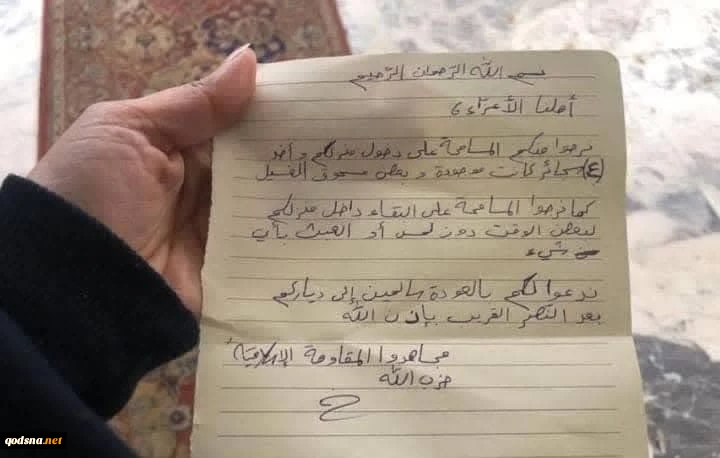 بسم الله الرحمان الرحيم
أهلنا الأعزاء،
نرجوا منكم المسامحة على دخول منزلكم و أخذ
(٤) سجائر كانت موجودة و بعض مسحوق الغسيل
كما نرجوا المسامحة على البقاء داخل منزلكم
لبعض الوقت دون لمس أو العبث بأي
شيء
ندعوا لكم بالعودة سالمين إلى دياركم
بعد النصر القريب بإذن الله
مجاهدوا المقاومة الإسلامية
حزب الله
qodsna.net